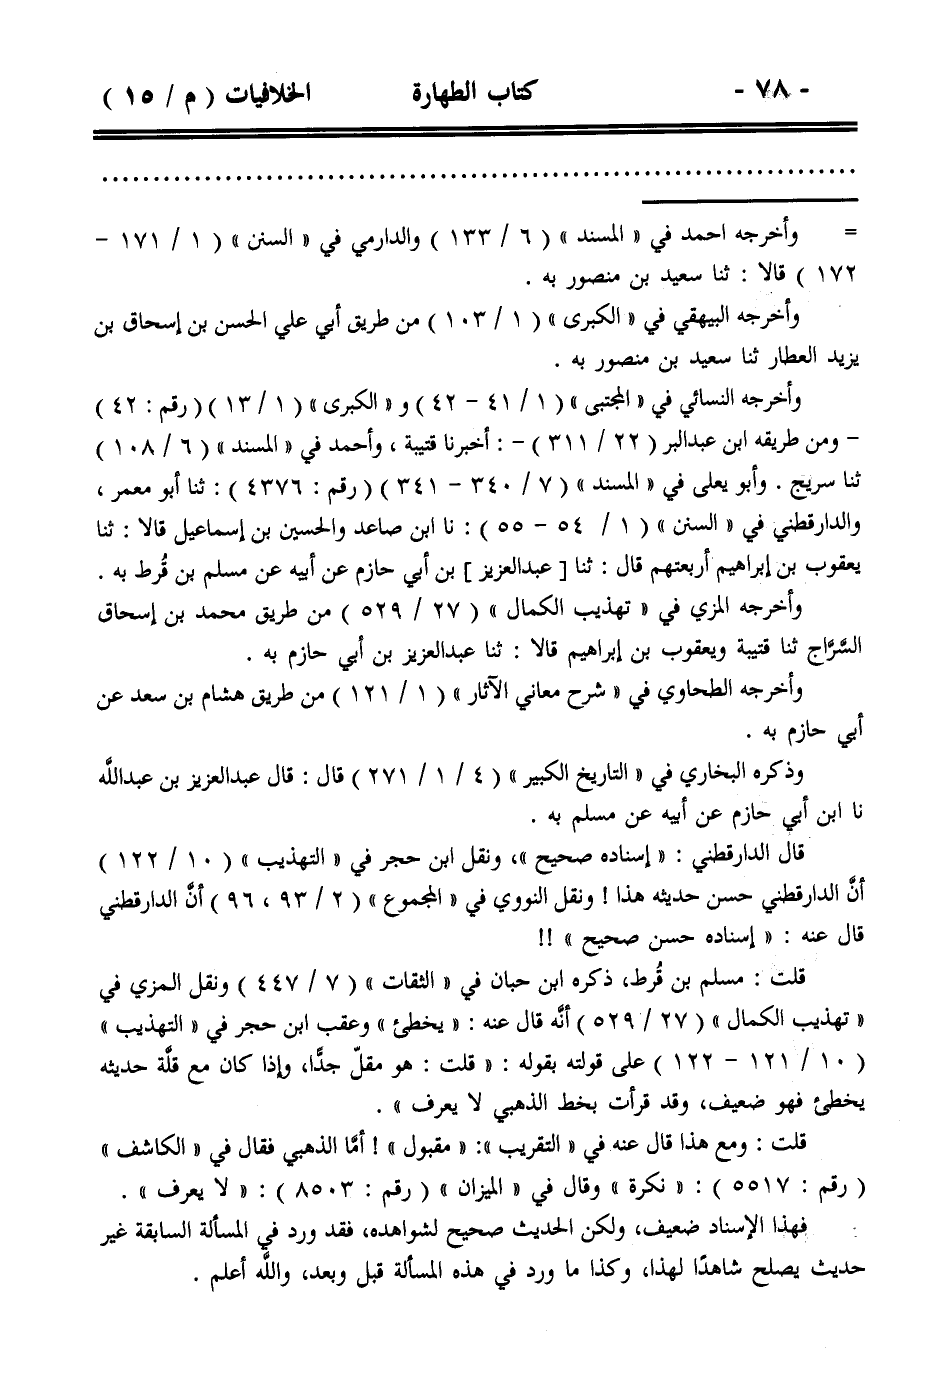 - ٧٨ - كتاب الطهارة الخلافيات ( م / ١٥ )
................................................................................
= وأخرجه احمد في « المسند » ( ٦ / ١٣٣ ) والدارمي في « السنن » ( ١ / ١٧١ -
١٧٢ ) قالا : ثنا سعيد بن منصور به .
وأخرجه البيهقي في « الكبرى » ( ١ / ١٠٣ ) من طريق أبي علي الحسن بن إسحاق بن
يزيد العطار ثنا سعيد بن منصور به .
وأخرجه النسائي في « المجتبى » ( ١ / ٤١ - ٤٢ ) و « الكبرى » ( ١ / ١٣ ) ( رقم : ٤٢ )
- ومن طريقه ابن عبدالبر ( ٢٢ / ٣١١ ) - : أخبرنا قتيبة ، وأحمد في « المسند » ( ٦ / ١٠٨ )
ثنا سريج . وأبو يعلى في « المسند » ( ٧ / ٣٤٠ - ٣٤١ ) ( رقم : ٤٣٧٦ ) : ثنا أبو معمر ،
والدارقطني في « السنن » ( ١ / ٥٤ - ٥٥ ) : نا ابن صاعد والحسين بن إسماعيل قالا : ثنا
يعقوب بن إبراهيم أربعتهم قال : ثنا [ عبدالعزيز ] بن أبي حازم عن أبيه عن مسلم بن قُرط به .
وأخرجه المزي في « تهذيب الكمال » ( ٢٧ / ٥٢٩ ) من طريق محمد بن إسحاق
السَّرَّاج ثنا قتيبة ويعقوب بن إبراهيم قالا : ثنا عبدالعزيز بن أبي حازم به .
وأخرجه الطحاوي في « شرح معاني الآثار » ( ١ / ١٢١ ) من طريق هشام بن سعد عن
أبي حازم به .
وذكره البخاري في « التاريخ الكبير » ( ٤ / ١ / ٢٧١ ) قال : قال عبدالعزيز بن عبداللَّه
نا ابن أبي حازم عن أبيه عن مسلم به .
قال الدارقطني : « إسناده صحيح »، ونقل ابن حجر في « التهذيب » ( ١٠ / ١٢٢ )
أنَّ الدارقطني حسن حديثه هذا ! ونقل النووي في « المجموع » ( ٢ / ٩٣ ، ٩٦ ) أنَّ الدارقطني
قال عنه : « إسناده حسن صحيح » !!
قلت : مسلم بن قُرط، ذكره ابن حبان في « الثقات » ( ٧ / ٤٤٧ ) ونقل المزي في
« تهذيب الكمال » ( ٢٧ / ٥٢٩ ) أنَّه قال عنه : « يخطئ » وعقب ابن حجر في « التهذيب »
( ١٠ / ١٢١ - ١٢٢ ) على قولته بقوله : « قلت : هو مقلّ جدًّا، وإذا كان مع قلَّة حديثه
يخطئ فهو ضعيف، وقد قرأت بخط الذهبي لا يعرف » .
قلت : ومع هذا قال عنه في « التقريب »: « مقبول » ! أمَّا الذهبي فقال في « الكاشف »
( رقم : ٥٥١٧ ) : « نكرة » وقال في « الميزان » ( رقم : ٨٥٠٣ ) : « لا يعرف » .
فهذا الإسناد ضعيف، ولكن الحديث صحيح لشواهده، فقد ورد في المسألة السابقة غير
حديث يصلح شاهدًا لهذا، وكذا ما ورد في هذه المسألة قبل وبعد، واللَّه أعلم .